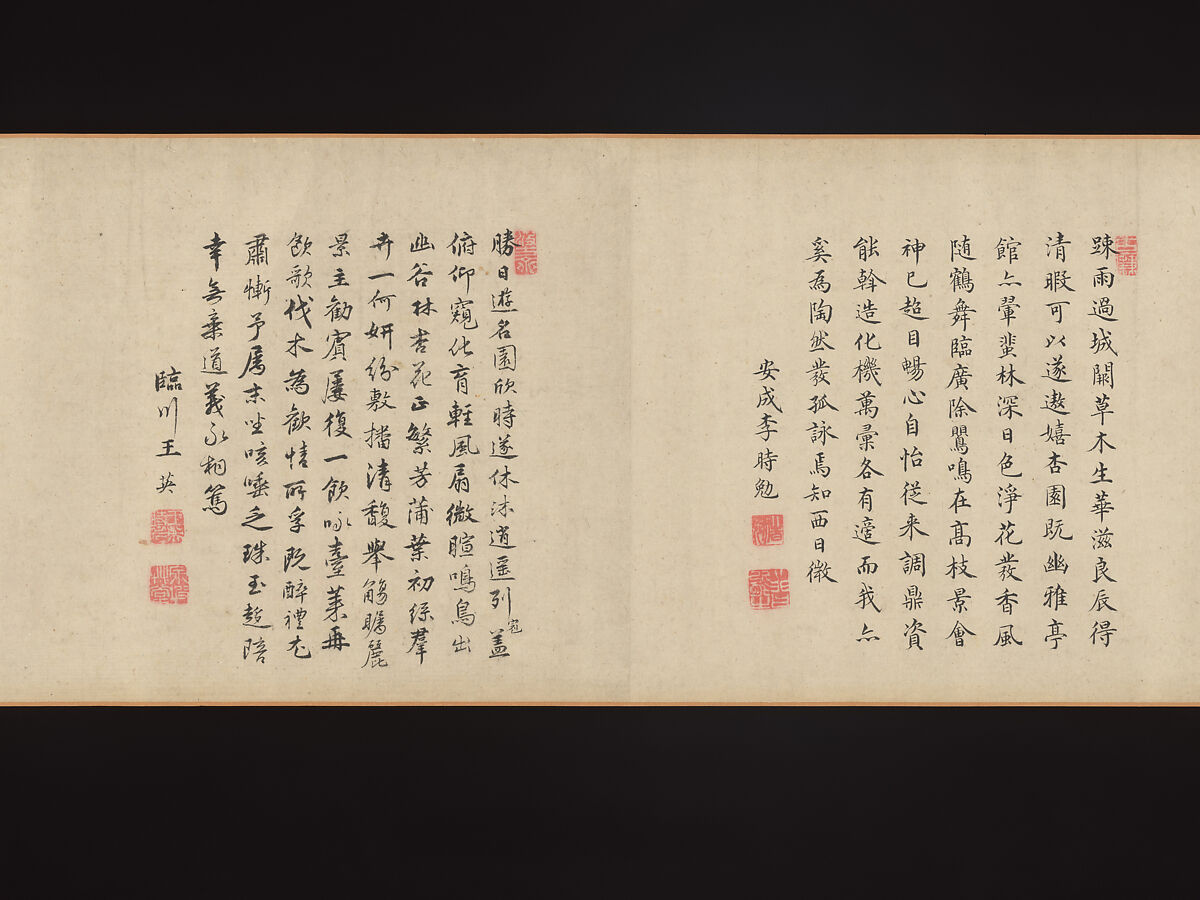 踈雨過城闕草木生華滋良辰得
清暇可以遂遨嬉杏園既幽雅亭
館亦翬蜚林深日色淨花發香風
随鶴舞臨廣除鸎鳴在髙枝景會
神已超目暢心自怡從来調鼎資
能斡造化機萬彙各有適而我亦
奚為陶然發孤詠焉知西日微
安成李時勉
勝日遊名園欣時遂休沐逍遥列冠盖
俯仰窺化育輕風扇微暄鳴鳥出
幽谷林杏花正繁芳蒲葉初綠羣
卉一何妍紛敷播清馥舉觴瞩麗
景主勸賓屡復一飲咏臺萊再
飲歌伐木為歡情所孚既醉禮尤
肅慚予厲末坐咳唾乏珠玉趍陪
幸無棄道義永相篤
臨川王英